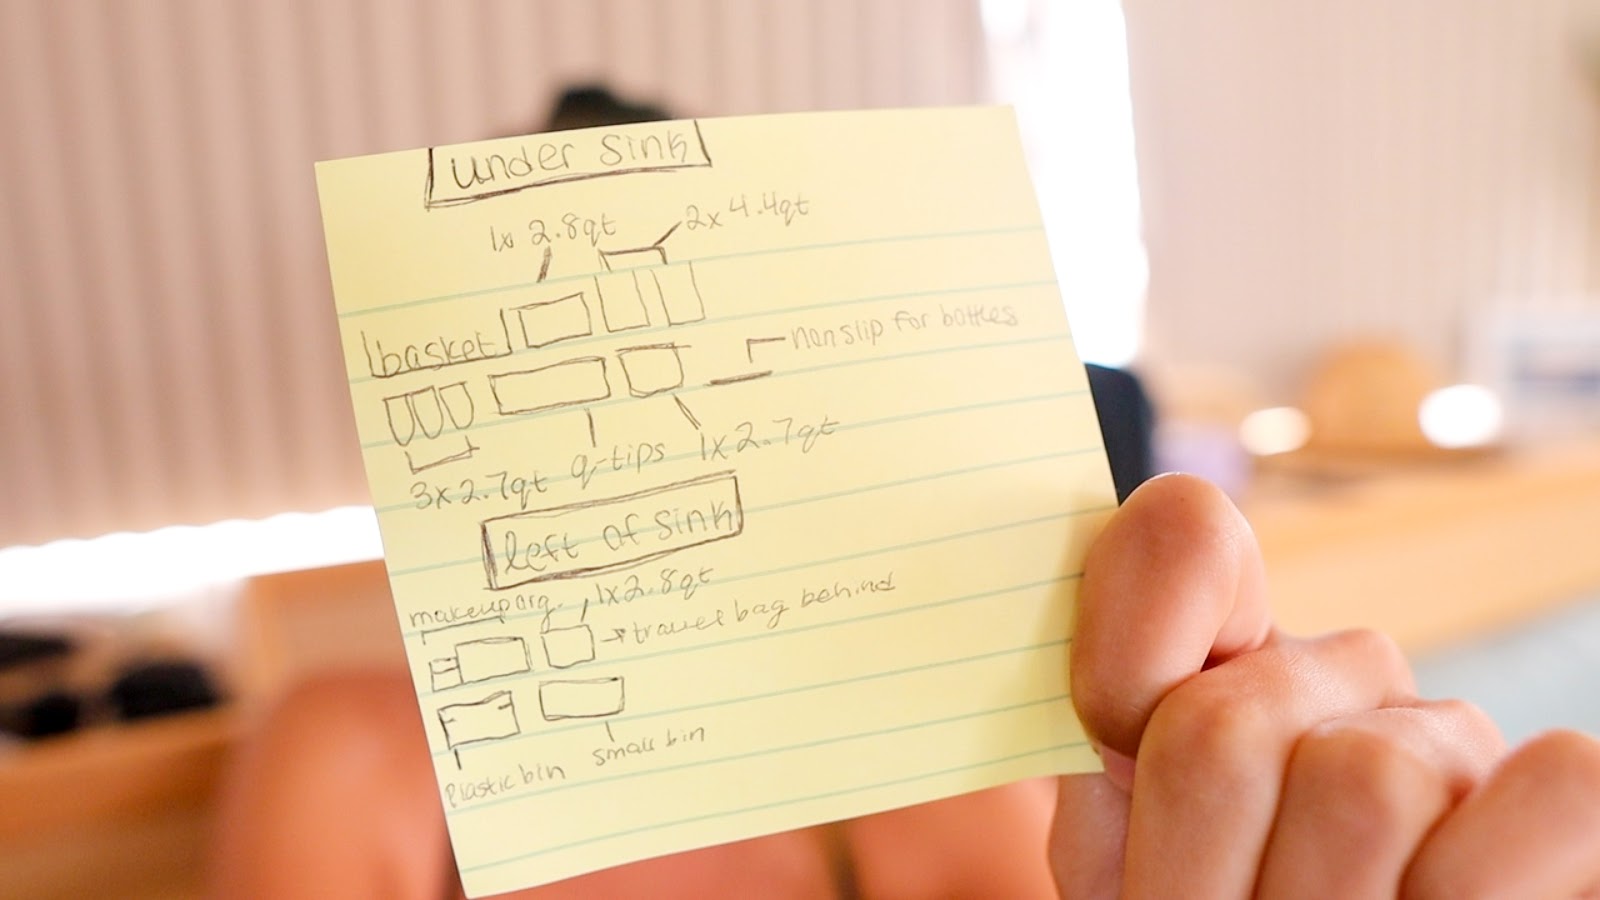 under sink
1x 2.8qt 2x 4.4qt
basket
nonslip for bottles
3x2.7qt q-tips 1x2.7qt
left of sink
makeup org. 1x2.8qt
travel bag behind
small bin
plastic bin